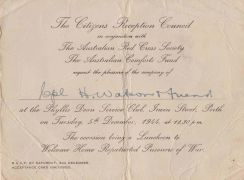 The Citizens Reception Council
in conjunction with
The Australian Red Cross Society
The Australian Comforts Fund
request the pleasure of the company of
Cpl H. Watson & friend
at the Phyllis Dean Service Club, Irwin Street, Perth
on Tuesday, 5th December, 1944, at 12.30 p.m.
The occasion being a Luncheon to
Welcome Home Repatriated Prisoners of War.
R.S.V.P. BY SATURDAY, 2nd DECEMBER.
ACCEPTANCE CARD ENCLOSED.